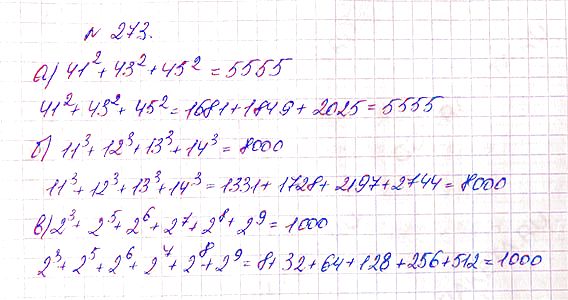 № 273.
а) 41² + 43² + 45² = 5555
41² + 43² + 45² = 1681 + 1849 + 2025 = 5555
б) 11³ + 12³ + 13³ + 14³ = 8000
11³ + 12³ + 13³ + 14³ = 1331 + 1728 + 2197 + 2744 = 8000
в) 2³ + 2⁵ + 2⁶ + 2⁷ + 2⁸ + 2⁹ = 1000
2³ + 2⁵ + 2⁶ + 2⁷ + 2⁸ + 2⁹ = 8 + 32 + 64 + 128 + 256 + 512 = 1000